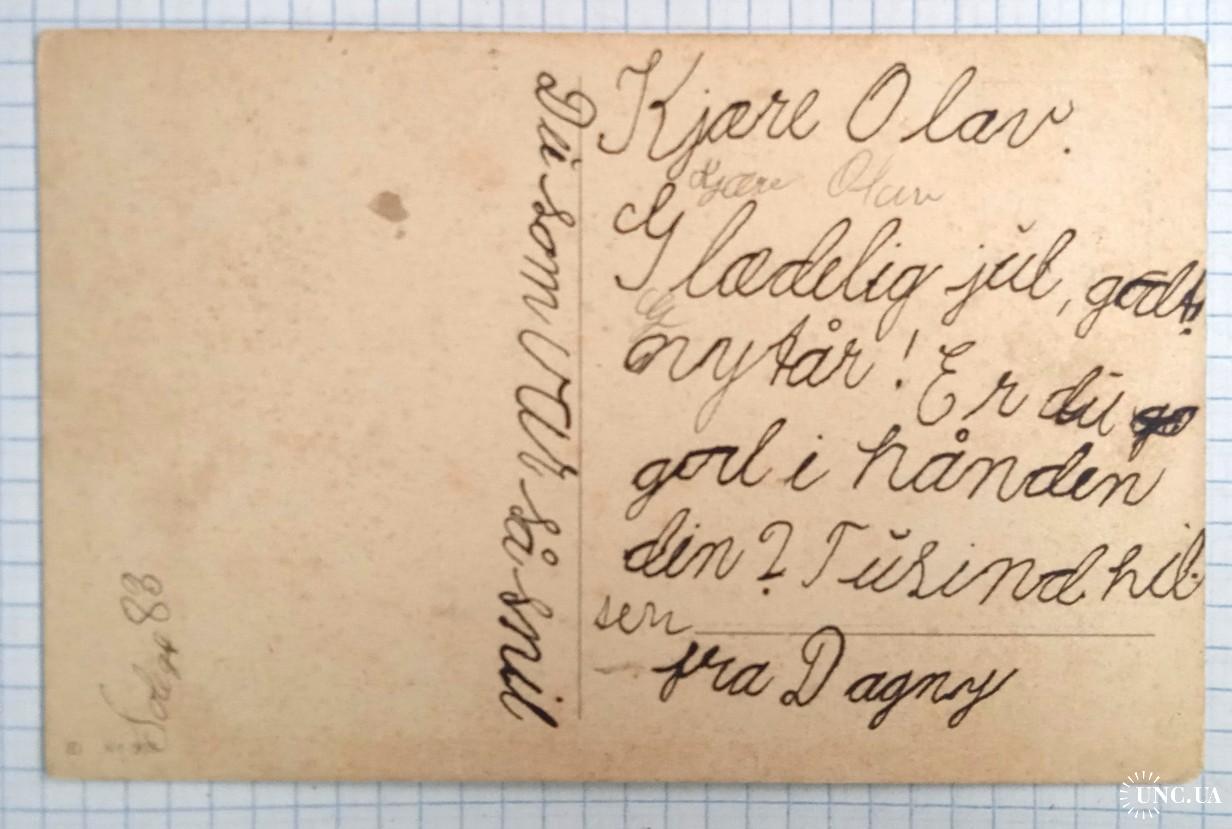 Kjære Olav.
Kjære Olav
Glædelig jul, godt
nytår! Er du
god i hånden
din? Tusind hil-
sen
fra Dagny
Du som
så snil
88
UNC.UA